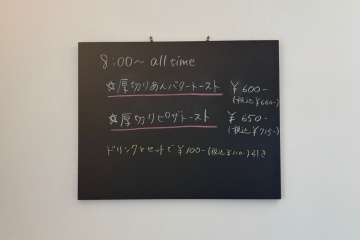 8:00~ all time
☆厚切りあんバタートースト ¥600-
(税込¥660-)
☆厚切りピザトースト ¥650-
(税込¥715-)
ドリンクとセットで¥100-(税込¥110-)引き